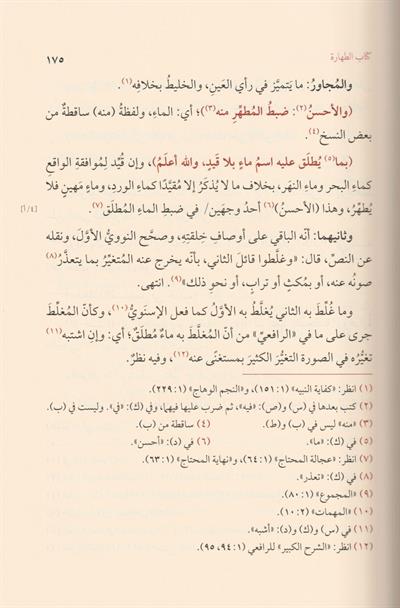 كتاب الطهارة ١٧٥
والمُجاورُ: ما يَتميَّز في رأي العَينِ، والخليطُ بخلافِه(١).
(والأحسنُ(٢): ضبطُ المُطهِّرِ منه(٣))؛ أي: الماءِ، ولفظةُ (منه) ساقطةٌ من
بعض النسخِ(٤).
(بما(٥) يُطلَق عليه اسمُ ماءٍ بلا قَيدٍ، والله أعلَمُ)، وإن قُيِّد لِمُوافقةِ الواقعِ
كماءِ البحر وماءِ النهَر، بخلاف ما لا يُذكَرُ إلا مُقيَّدًا كماءِ الوردِ، وماءٍ مَهينٍ فلا
يُطهِّرُ، وهذا (الأحسنُ)(٦) أحدُ وجهَين/ في ضبطِ الماءِ المُطلَق(٧). [٤/أ]
وثانيهما: أنَّه الباقي على أوصافِ خِلقتِهِ، وصحَّح النوويُّ الأوَّلَ، ونقله
عن النصِّ، قال: «وغلَّطوا قائلَ الثاني، بأنَّه يخرج عنه المُتغيِّرُ بما يتعذَّرُ(٨)
صونُه عنه، أو بمُكثٍ أو ترابٍ، أو نحوِ ذلك»(٩). انتهى.
وما غُلِّطَ به الثاني يُغلَّطُ به الأوَّلُ كما فعل الإسنَويُّ(١٠)، وكأنَّ المُغلِّطَ
جرى على ما في «الرافعيِّ» من أنّ المُغلَّطَ به ماءٌ مُطلَقٌ؛ أي: وإن اشتبه(١١)
تغيُّرُه في الصورة التغيُّرَ الكثيرَ بمستغنًى عنه(١٢)، وفيه نظرٌ.
(١) انظر: «كفاية النبيه» (١: ١٥١)، و«النجم الوهاج» (١: ٢٢٩).
(٢) كتب بعدها في (س) و(ص): «فيه»، ثم ضرب عليها فيهما، وفي (ك): «في». وليست في (ب).
(٣) «منه» ليس في (ب) و(ط). (٤) ساقطة من (ب).
(٥) في (ك): «ما». (٦) في (د): «أحسن».
(٧) انظر: «عجالة المحتاج» (١: ٦٤)، و«نهاية المحتاج» (١: ٦٣).
(٨) في (ك): «تعذر».
(٩) «المجموع» (١: ٨٠).
(١٠) «المهمات» (٢: ١٠).
(١١) في (س) و(ك) و(د): «أشبه».
(١٢) انظر: «الشرح الكبير» للرافعي (١: ٩٤، ٩٥).